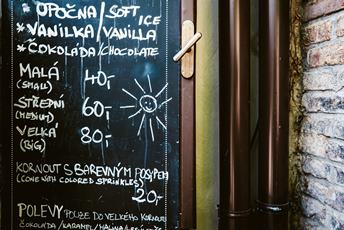 * OPOČNA/SOFT ICE
* VANILKA/VANILLA
* ČOKOLÁDA/CHOCOLATE
MALÁ 40,-
(SMALL)
STŘEDNÍ 60,-
(MEDIUM)
VELKÁ 80,-
(BIG)
KORNOUT S BAREVNÝM POSYPEM
(CONE WITH COLORED SPRINKLES)
20,-
POLEVY POUZE DO VELKÉHO KORNOUTU
ČOKOLÁDA/KARAMEL/MALINA/